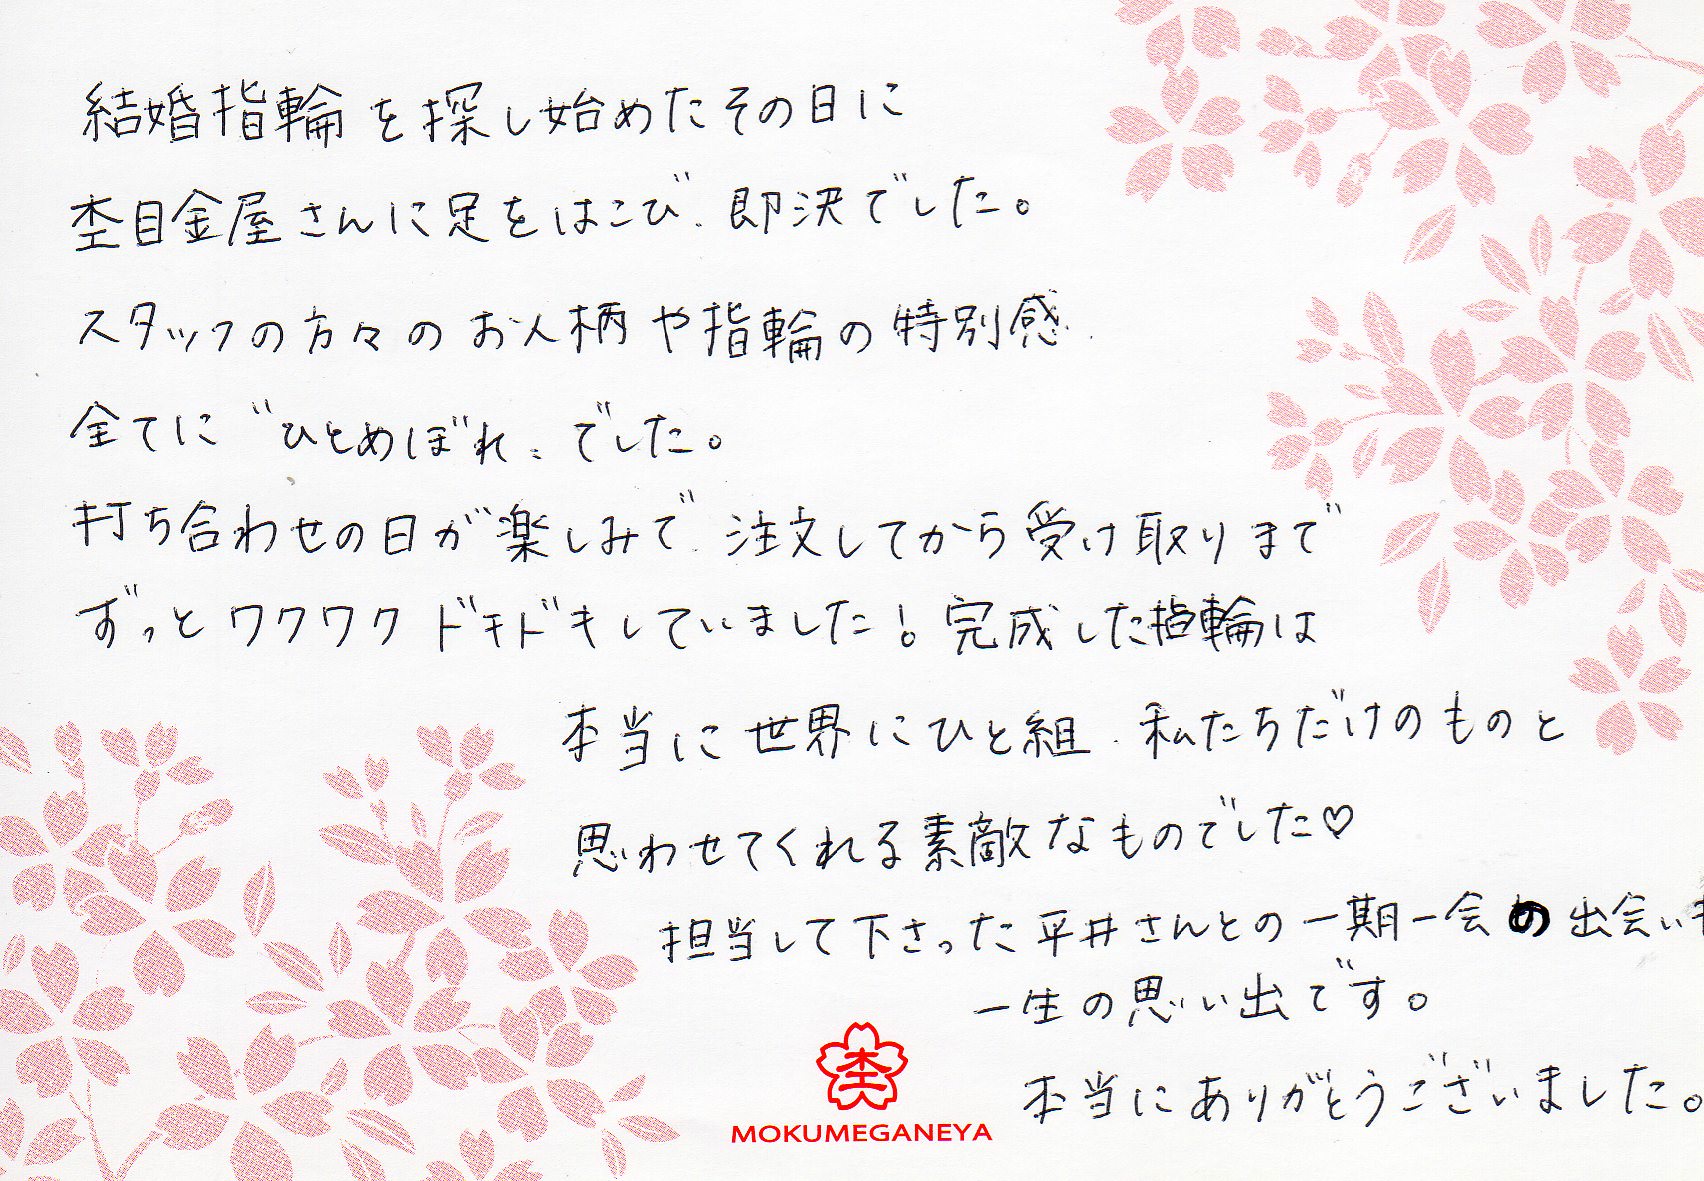 結婚指輪を探し始めたその日に
杢目金屋さんに足をはこび、即決でした。
スタッフの方々のお人柄や指輪の特別感、
全てに〝ひとめぼれ〟でした。
打ち合わせの日が楽しみで、注文してから受け取りまで
ずっとワクワクドキドキしていました!完成した指輪は
本当に世界にひと組、私たちだけのものと
思わせてくれる素敵なものでした♡
担当して下さった平井さんとの一期一会の出会いも
一生の思い出です。
本当にありがとうございました。
杢
MOKUMEGANEYA